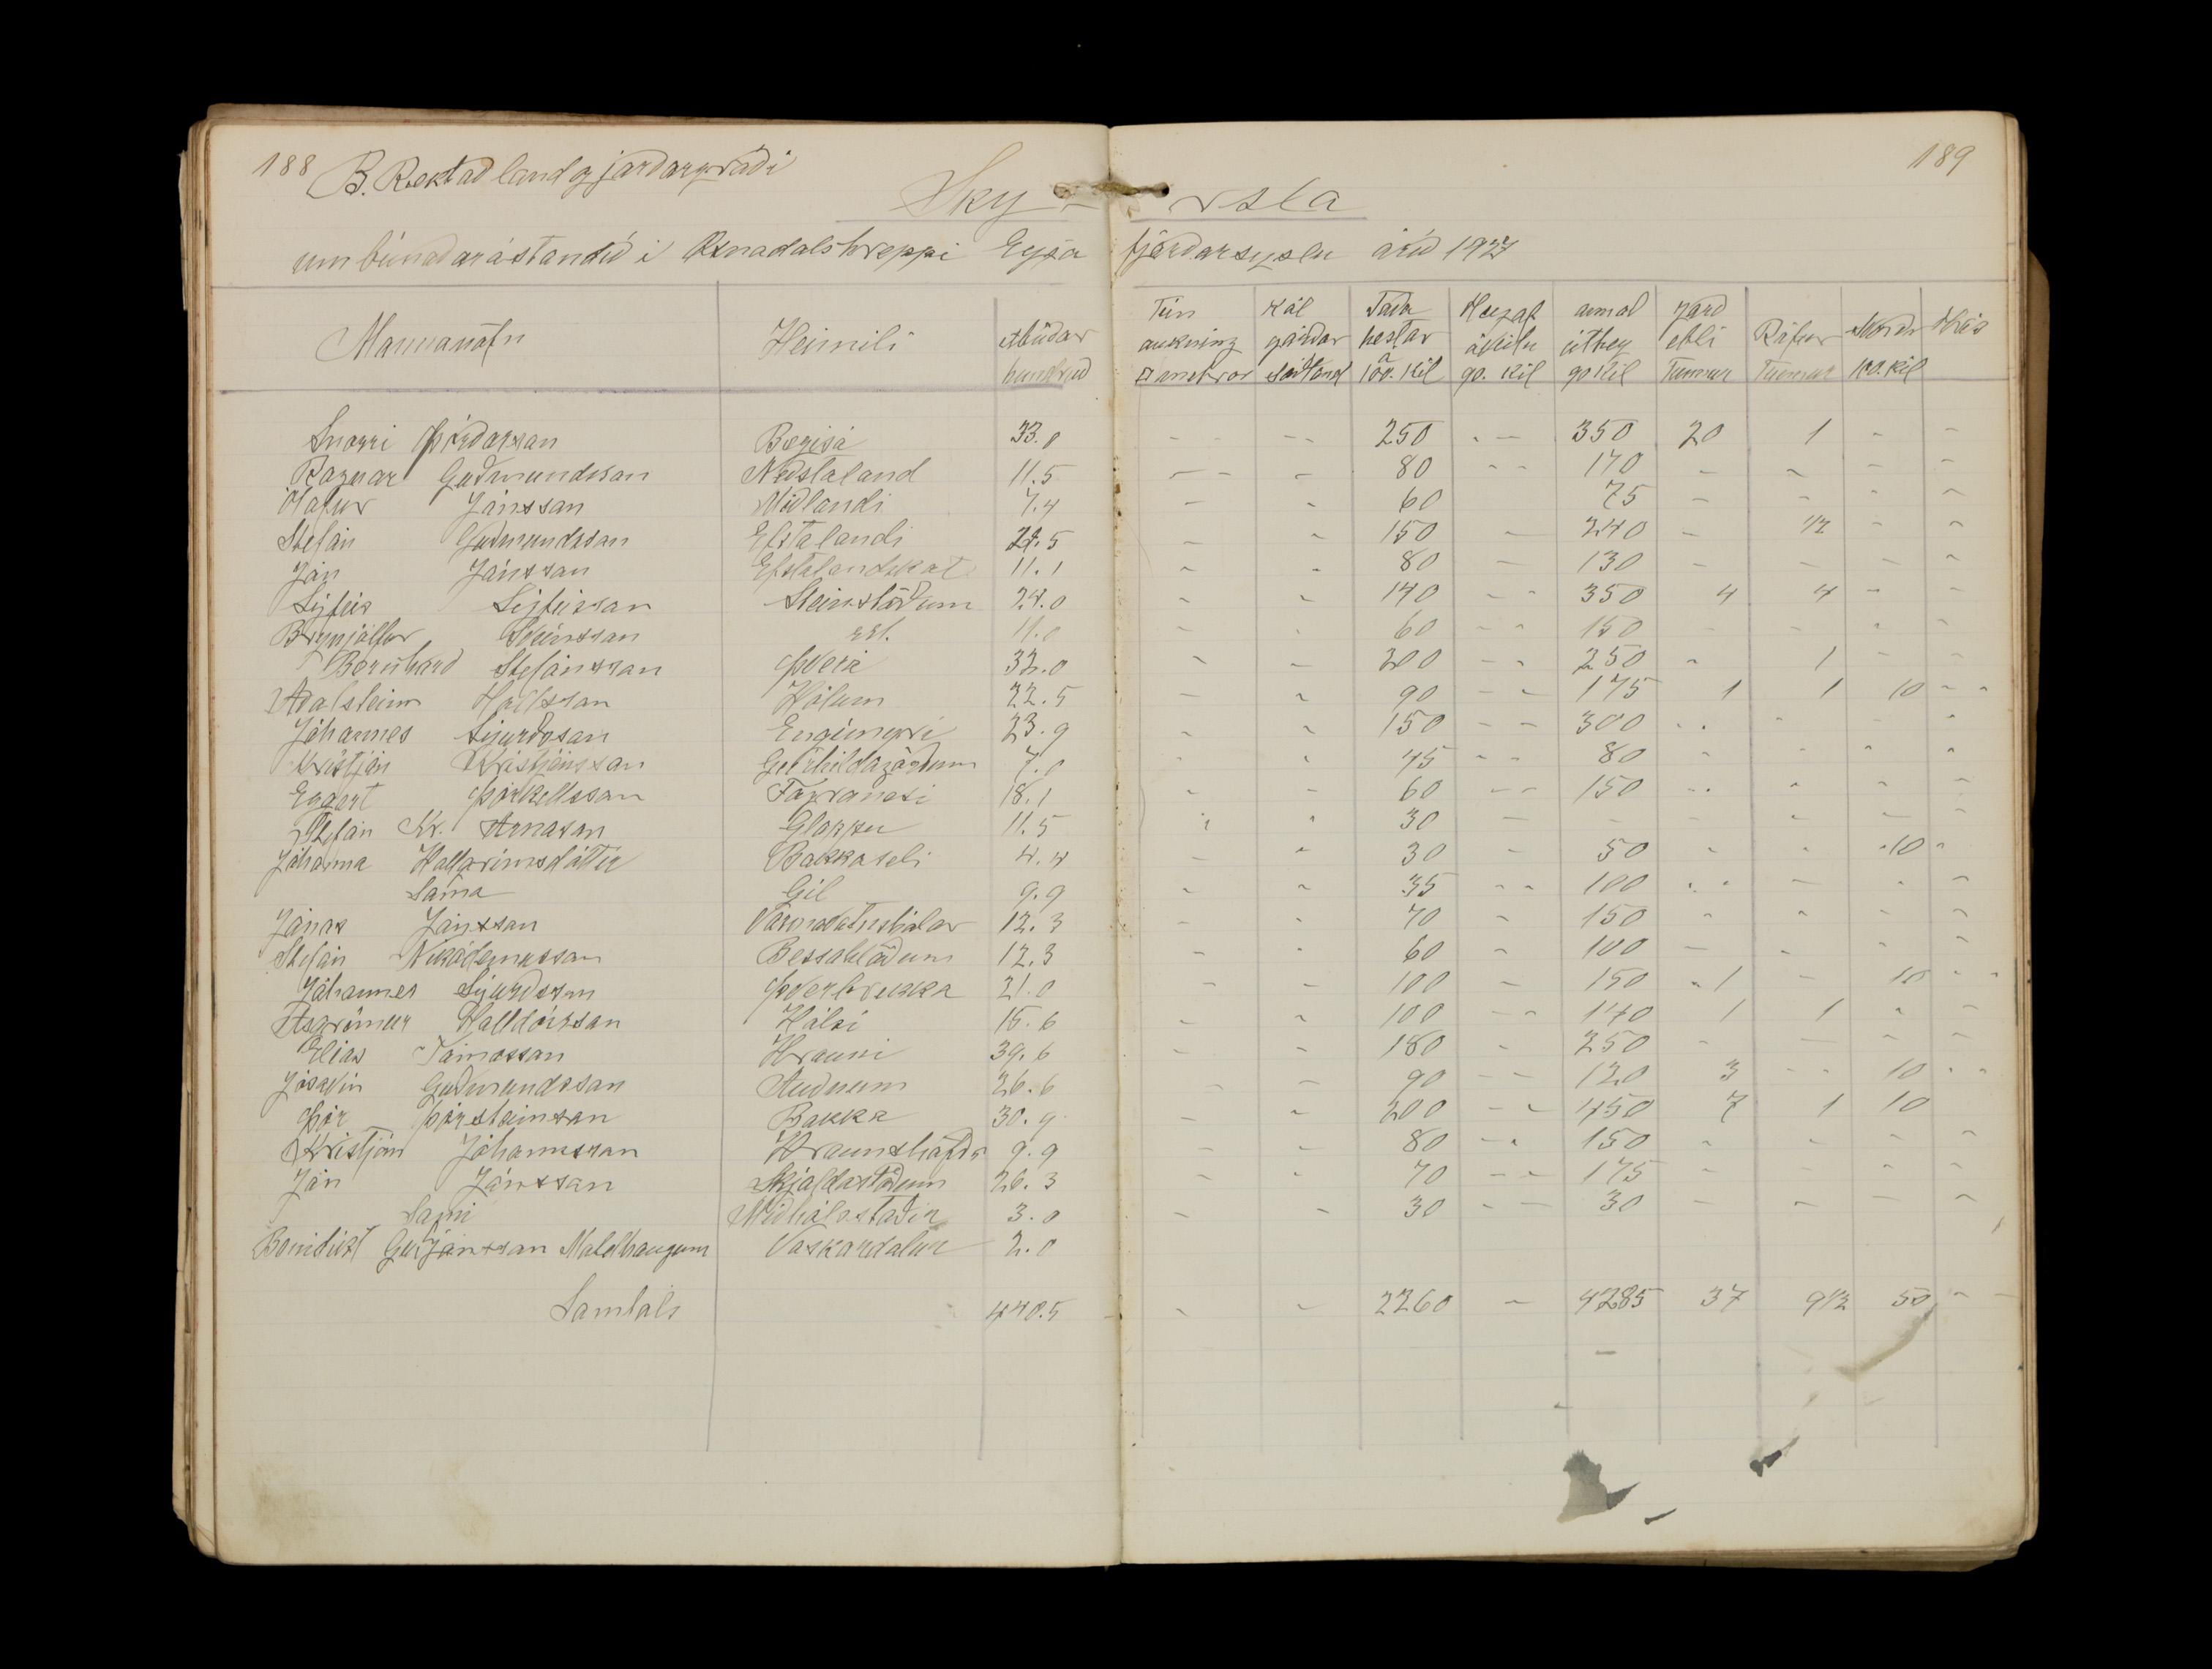 188 B. Ræktað land og jarðargróði 189
Ský - rsla
um búnaðarástandið i Öxnadalshreppi Eyja fjarðarsýslu árið 1927
Mannanöfn Heimili Ábúdar hundrud Tún aukning □ metrar Kál gardar sáðland Tada hestar á 100. kil Heyaf áveitu 90. kil annad úthey 90 kil Jard epli Tunnur Rófur Tunnur 100. kil Hrís
Snorri Þórdarsan Bægisá 33.0 - - - - 250 - - 350 20 1 - -
Ragnar Gudmundssan Nedstaland 11.5 - - - 80 - - 170 - - - -
Ólafur Jónssan Midlandi 7.4 - - 60 75 - - - -
Stefán Gudmundssan Efstalandi 24.5 - - 150 - 240 - 1/2 - -
Jón Jónssan Efstalandskot 11.1 - - 80 - 130 - - - -
Sigfús Sigfússan Steinstödum 24.0 - - 140 - - 350 4 4 - -
Brynjólfur Sveinssan 11.0 - - 60 - - 150 - - - -
Bernhard Stefánssan Þverá 32.0 - - 200 - - 250 - 1 - -
Adalsteinn Hallssan Hólum 22.5 - - 90 - - 175 1 1 10 - -
Jóhannes Sigurdssan Engimýri 23.9 - - 150 - - 300 - - - - -
Kristján Kristjánssan Geirhildagördum 7.0 - - 45 - - 80 - - - -
Eggert Þorkellssan Fagranesi 18.1 - - 60 - - 150 - - - - -
Stefán Kr. Árnasan Gloppu 11.5 - - 30 - - - - - -
Jóhanna Hallgrímsdóttir Bakkaseli 4.4 - - 30 - 50 - - 10 -
Sama Gil 9.9 - - 35 - - 100 - - - - -
Jónas Jónssan Varmavatnshólar 12.3 - - 70 - 150 - - - -
Stefán Nikódemussan Bessahlödum 12.3 - - 60 - 100 - - - -
Jóhannes Sigurdssan Þverbrekka 21.0 - - 100 - 150 1 - 10 - -
Ásgrímur Halldórssan Hálsi 15.6 - - 100 - - 140 1 1 - -
Elías Tómassan Hrauni 39.6 - - 180 - 250 - - - -
Jósavin Gudmundssan Audnum 26.6 - - 90 - - 120 3 - - 10 - -
Þór Þorsteinssan Bakka 30.9 - - 200 - - 450 7 1 10
Kristján Jóhannssan Hraunshöfdi 9.9 - - 80 - - 150 - - - -
Jón Jónssan Skjaldastödum 26.3 - - 70 - - 175 - - - -
Sami Midhálsstadir 3.0 - - 30 - - 30 - - - -
Benidikt Gudjónssan Moldhaugum Vaskárdalur 2.0
Samtals 470.5 - - 2260 - 4285 37 9 1/2 50 - -